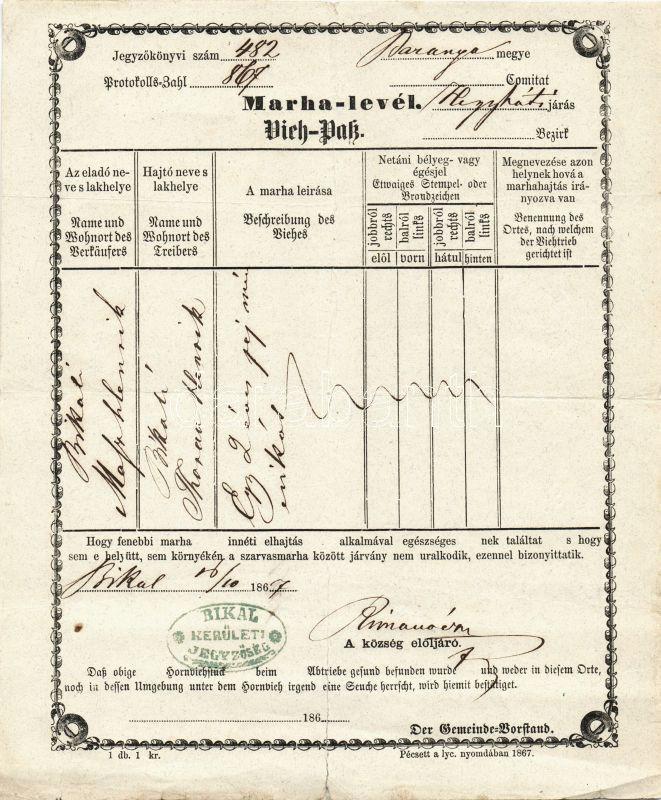 Jegyzőkönyvi szám 482
Baranya megye
Protokolls-Zahl 867
Comitat
Marha-levél.
Hegyháti járás
Vieh-Paß.
Bezirk
Az eladó ne-
ve s lakhelye
Name und
Wohnort des
Verkäufers
Hajtó neve s
lakhelye
Name und
Wohnort des
Treibers
A marha leirása
Beschreibung des
Viehes
Netáni bélyeg- vagy
égésjel
Etwaiges Stempel- oder
Brandzeichen
jobbról
rechts
balról
links
jobbról
rechts
balról
links
elől
vorn
hátul
hinten
Megnevezése azon
helynek hová a
marhahajtás irá-
nyozva van
Benennung des
Ortes, nach welchem
der Viehtrieb
gerichtet ist
Bikali
Bikali
Henrik
Egy 2 éves
Hogy fenebbi marha innéti elhajtás alkalmával egészséges nek találtat s hogy
sem e helyütt, sem környékén a szarvasmarha között járvány nem uralkodik, ezennel bizonyittatik.
Bikal 16/10 1867
BIKAL
KERÜLETI
JEGYZŐSÉG
A község elöljáró.
Daß obige Hornviehstück beim Abtriebe gesund befunden wurde und weder in diesem Orte,
noch in dessen Umgebung unter dem Hornvieh irgend eine Seuche herrscht, wird hiemit bestätiget.
186
Der Gemeinde-Vorstand.
1 db. 1 kr.
Pécsett a lyc. nyomdában 1867.